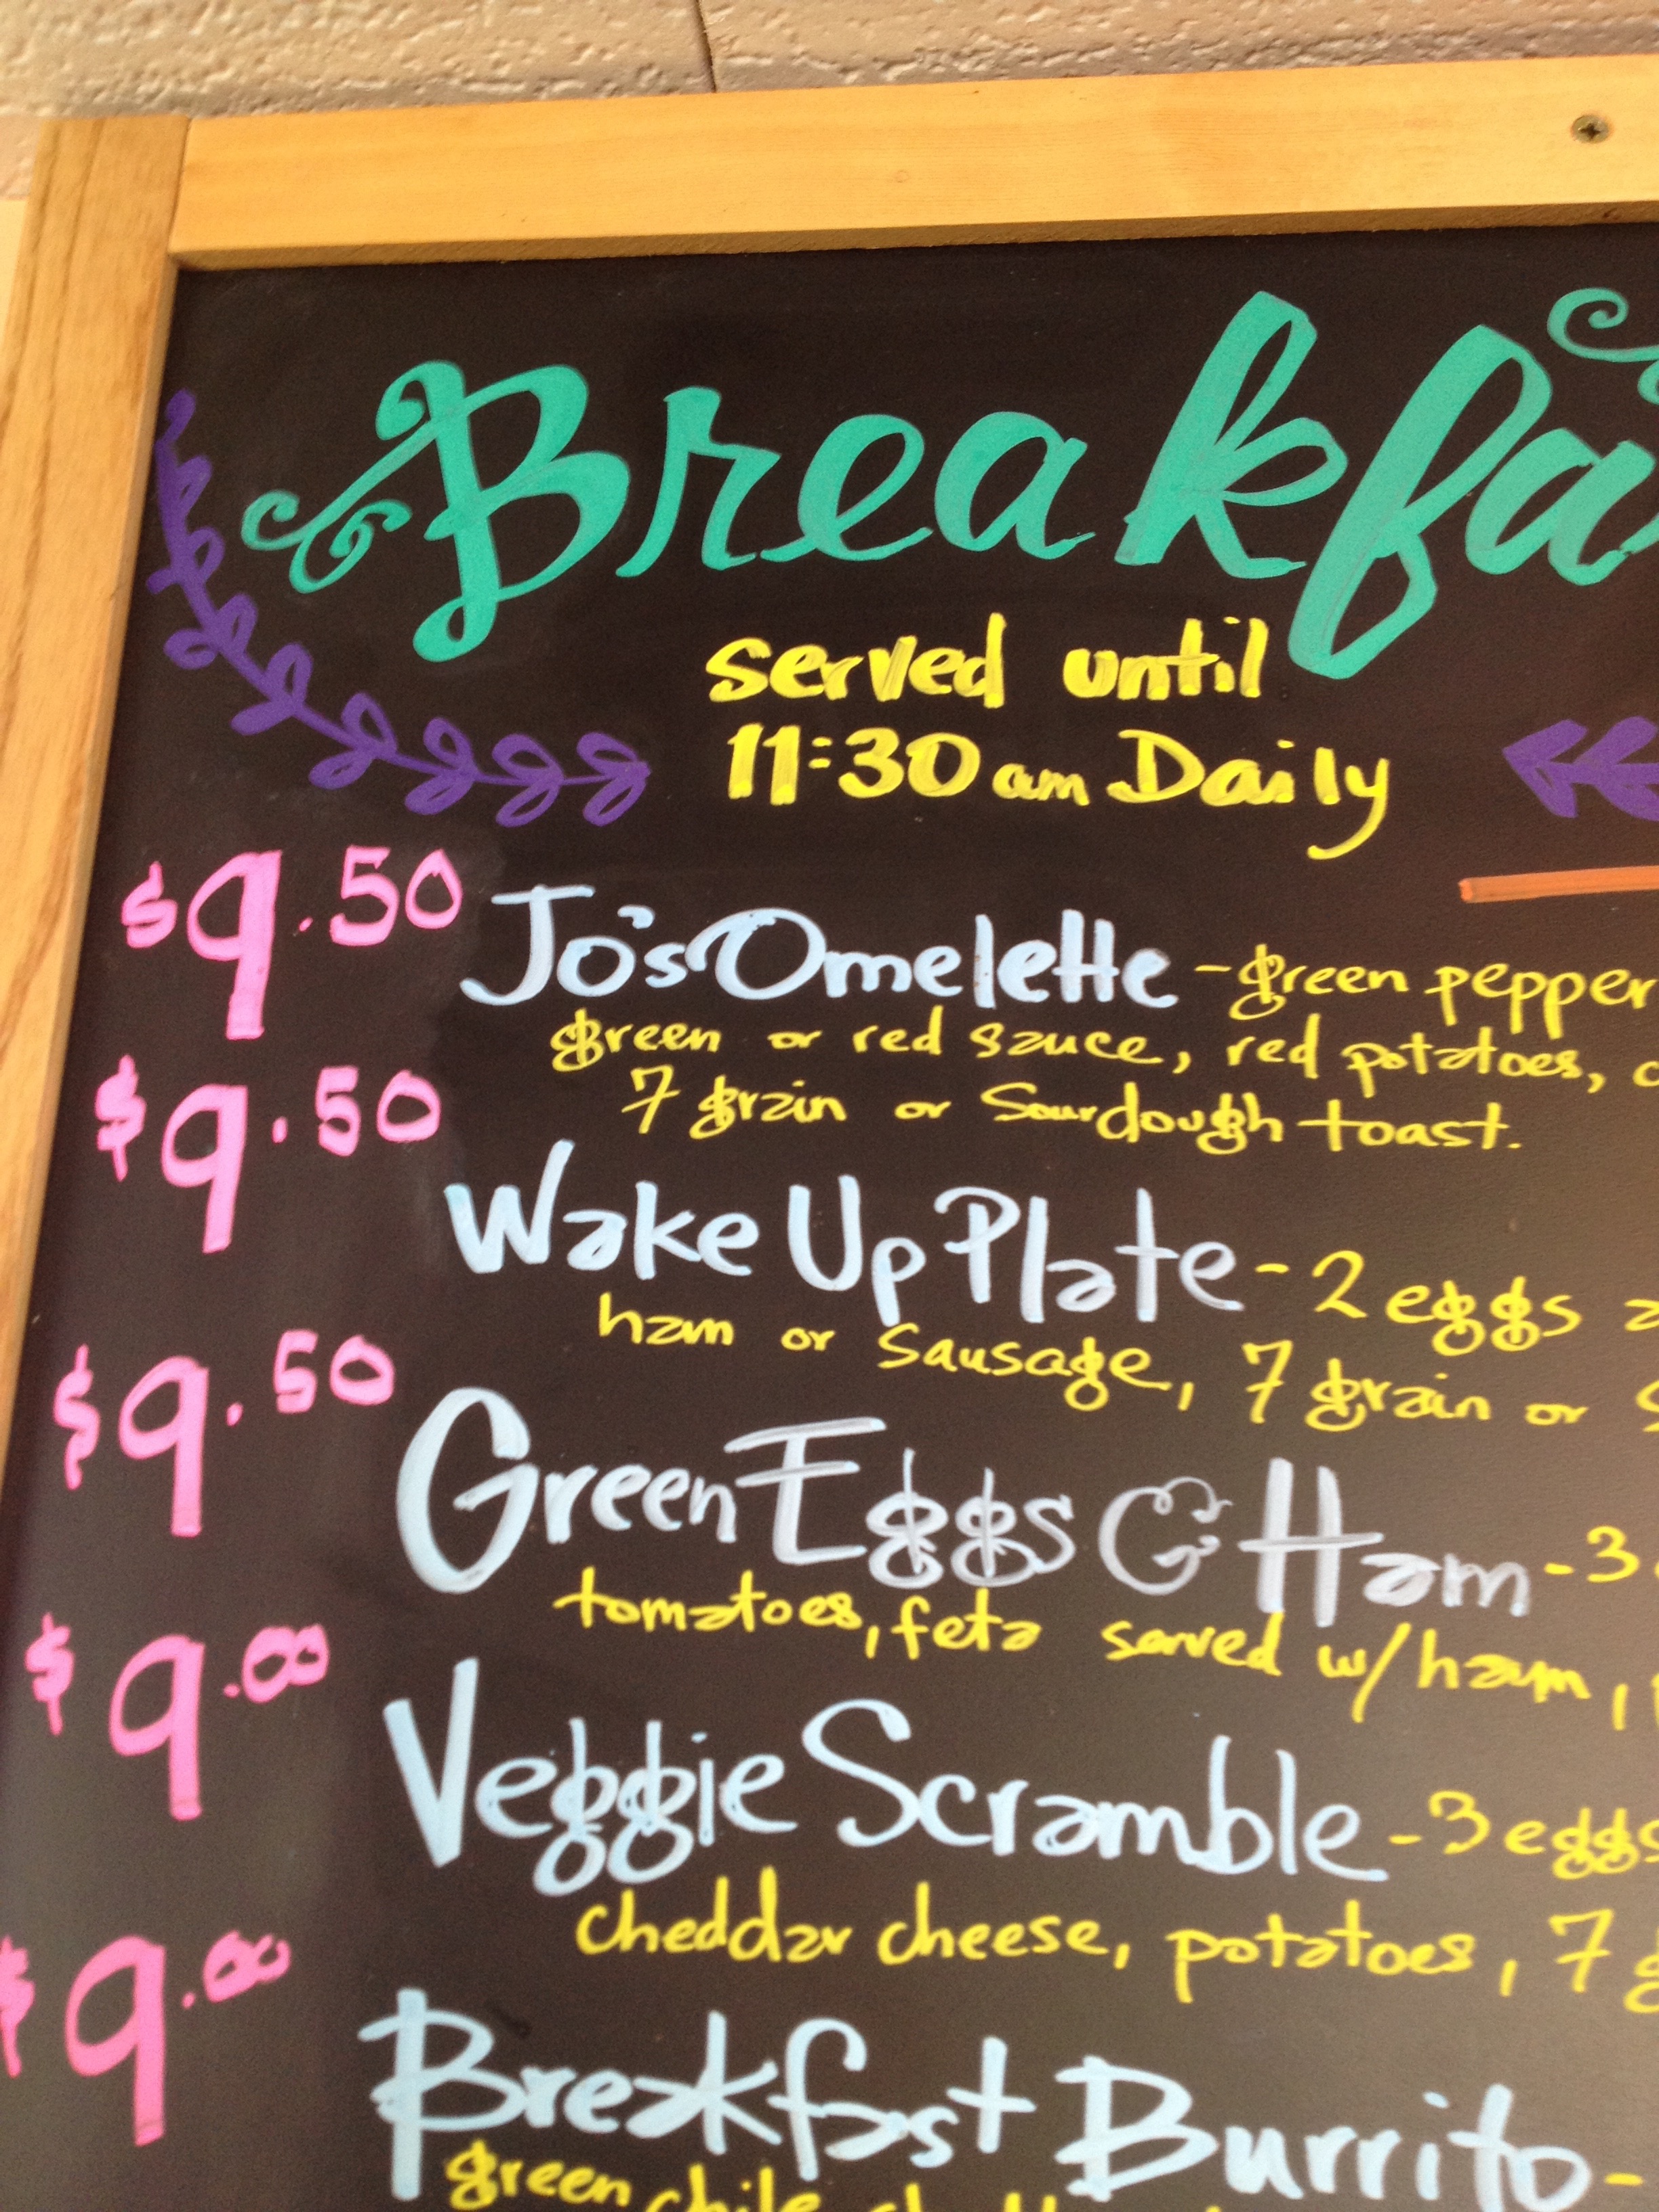 Breakfa
served until
11:30am Daily
$9.50 Jo's Omelette - green pepper
green or red sauce, red potatoes,
7 grain or Sourdough toast.
$9.50 Wake Up Plate - 2 eggs
ham or Sausage, 7 grain or
$9.50 Green Eggs & Ham - 3
tomatoes, feta served w/ ham,
$9.00 Veggie Scramble - 3 eggs
cheddar cheese, potatoes, 7
$9.00 Breakfast Burrito -
green chile